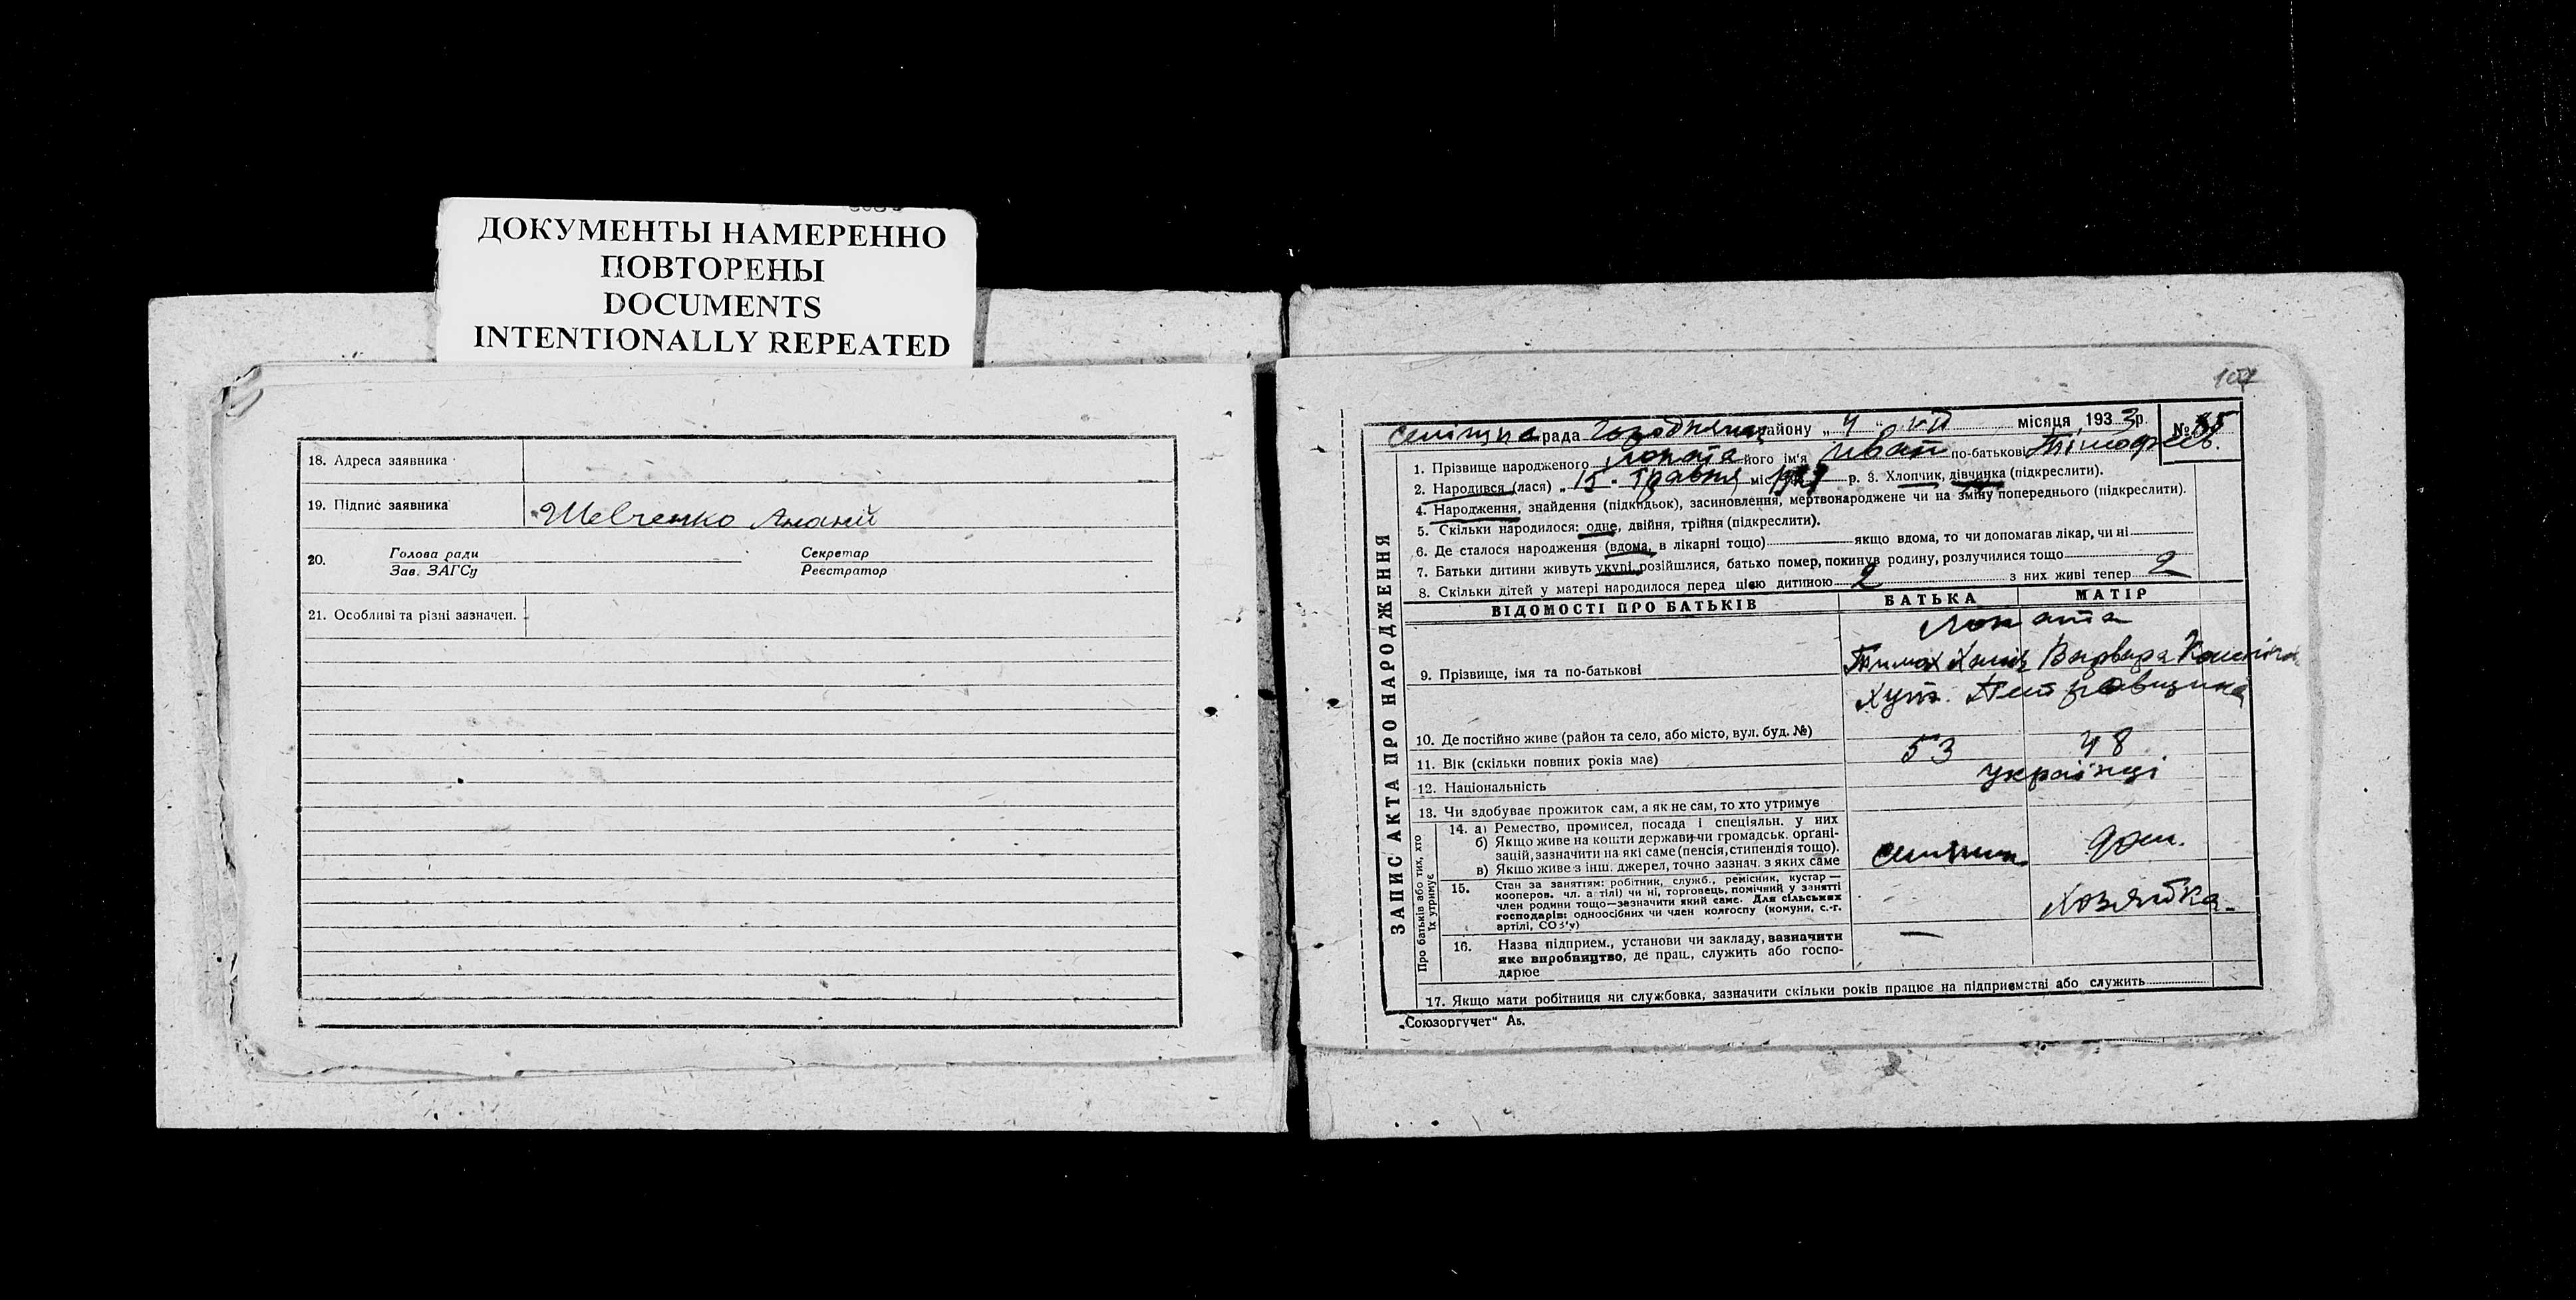 ДОКУМЕНТЫ НАМЕРЕННО
ПОВТОРЕНЫ
DOCUMENTS
INTENTIONALLY REPEATED
18. Адреса заявника
19. Підпис заявника Шевченко Ананий
20. Голова ради Секретар
Зав. ЗАГСу Реєстратор
21. Особливі та різні зазначен.
рада району „ 4 " VII місяця 1933 р. №
1. Прізвище народженого Лопата його ім'я Иван по-батькові Тімофеев.
2. Народився (лася) „ 15 - травня міс р. 3. Хлопчик, дівчинка (підкреслити).
4. Народження, знайдення (підкидьок), засиновлення, мертвонароджене чи на зміну попереднього (підкреслити).
5. Скільки народилося: одне, двійня, трійня (підкреслити).
6. Де сталося народження (вдома, в лікарні тощо) якщо вдома, то чи допомагав лікар, чи ні
7. Батьки дитини живуть укупі, розійшлися, батько помер, покинув родину, розлучилися тощо
8. Скільки дітей у матері народилося перед цією дитиною 2 з них живі тепер 2
ЗАПИС АКТА ПРО НАРОДЖЕННЯ
ВІДОМОСТІ ПРО БАТЬКІВ БАТЬКА МАТІР
Лопата
9. Прізвище, імя та по-батькові Варвара
хут. Петровщина
10. Де постійно живе (район та село, або місто, вул. буд. №)
11. Вік (скільки повних років має) 53 48
12. Національність українці
13. Чи здобуває прожиток сам, а як не сам, то хто утримує
Про батьків або тих, хто їх утримує
14. а) Ремество, промисел, посада і спеціяльн. у них
б) Якщо живе на кошти держави чи громадськ. органі-
зацій, зазначити на які саме (пенсія, стипендія тощо).
в) Якщо живе з інш. джерел, точно зазнач. з яких саме
дом.
15. Стан за заняттям: робітник, служб., ремісник, кустар —
кооперов. чл. артілі) чи ні, торговець, помічний у занятті
член родини тощо—зазначити який саме. Для сільських
господарів: одноосібних чи член колгоспу (комуни, с.-г.
артілі, СОЗ'у)
хозяйка
16. Назва підприєм., установи чи закладу, зазначити —
яке виробництво, де прац., служить або госпо-
дарює
17. Якщо мати робітниця чи службовка, зазначити скільки років працює на підприємстві або служить
„Союзоргучет"